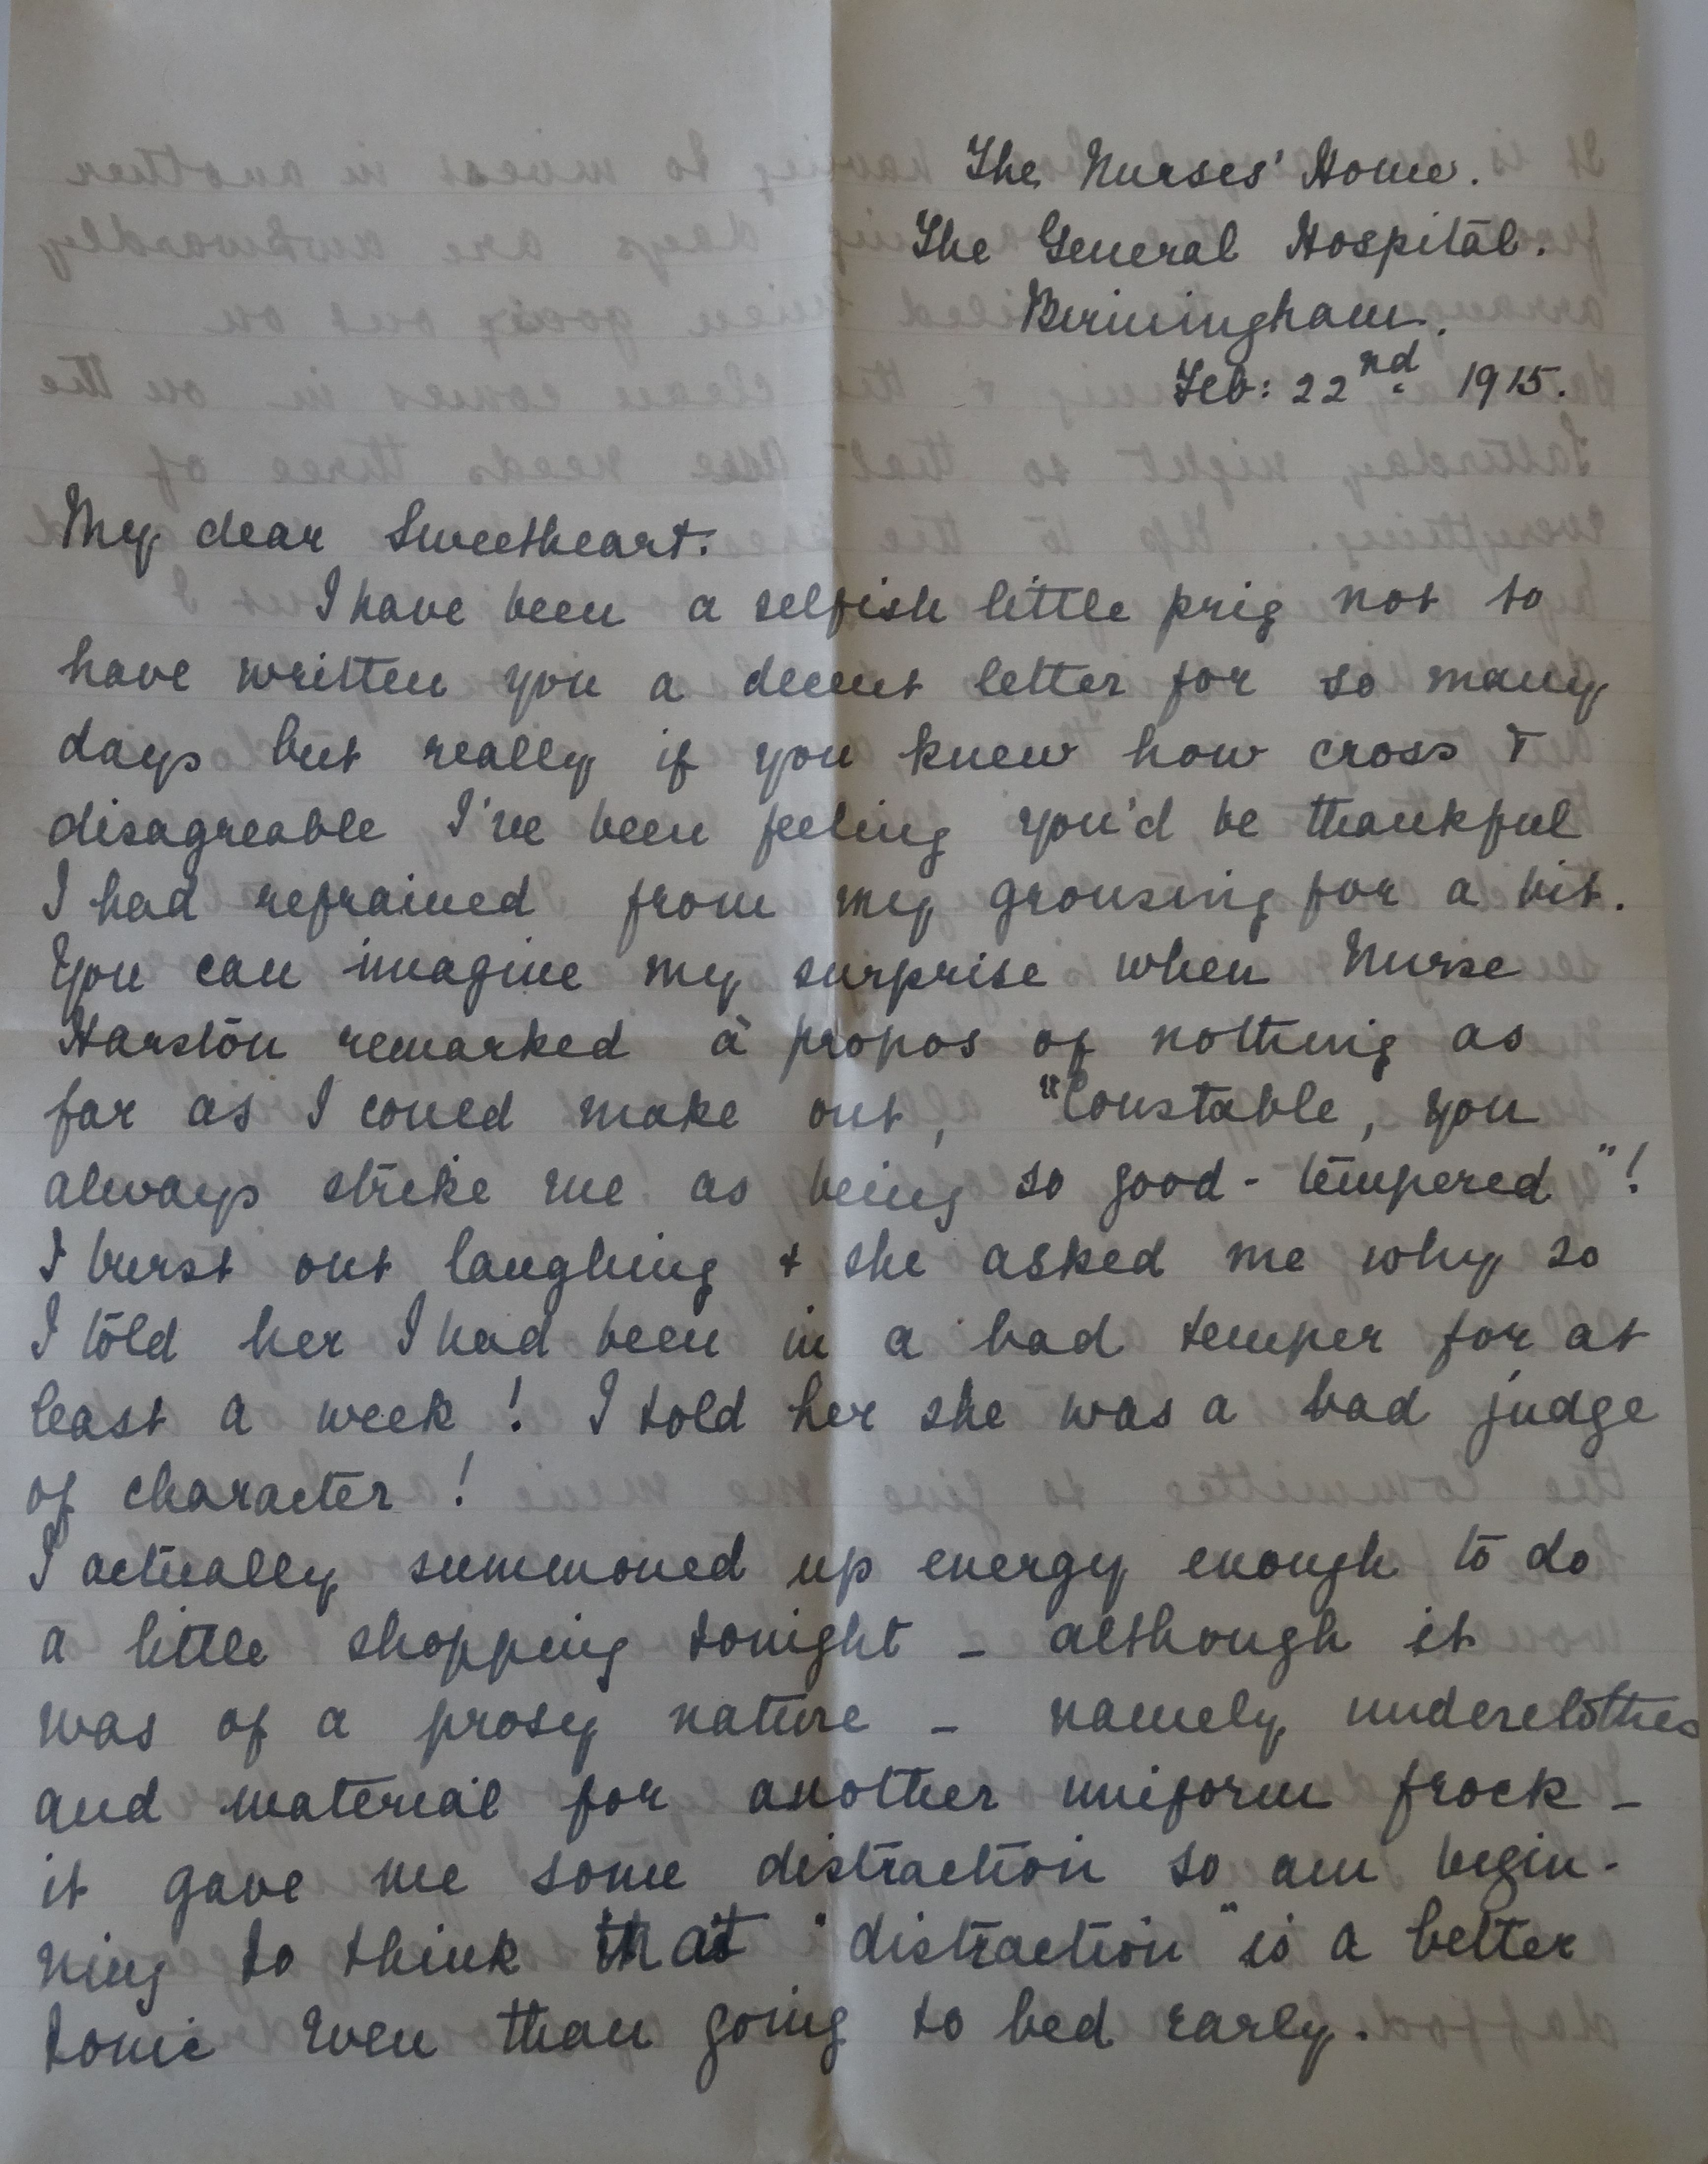 The Nurses' Home.
The General Hospital.
Birmingham.
Feb: 22nd 1915.
My dear Sweetheart.
I have been a selfish little prig not to
have written you a decent letter for so many
days but really if you knew how cross &
disagreable I've been feeling you'd be thankful
I had refrained from my grousing for a bit.
You can imagine my surprise when Nurse
Harston remarked à propos of nothing as
far as I could make out, "Constable, you
always strike me as being so good-tempered"!
I burst out laughing & she asked me why so
I told her I had been in a bad temper for at
least a week! I told her she was a bad judge
of character!
I actually summoned up energy enough to do
a little shopping tonight - although it
was of a prosy nature - namely underclothes
and material for another uniform frock -
it gave me some distraction so am begin-
ning to think that "distraction" is a better
tonic even than going to bed early.